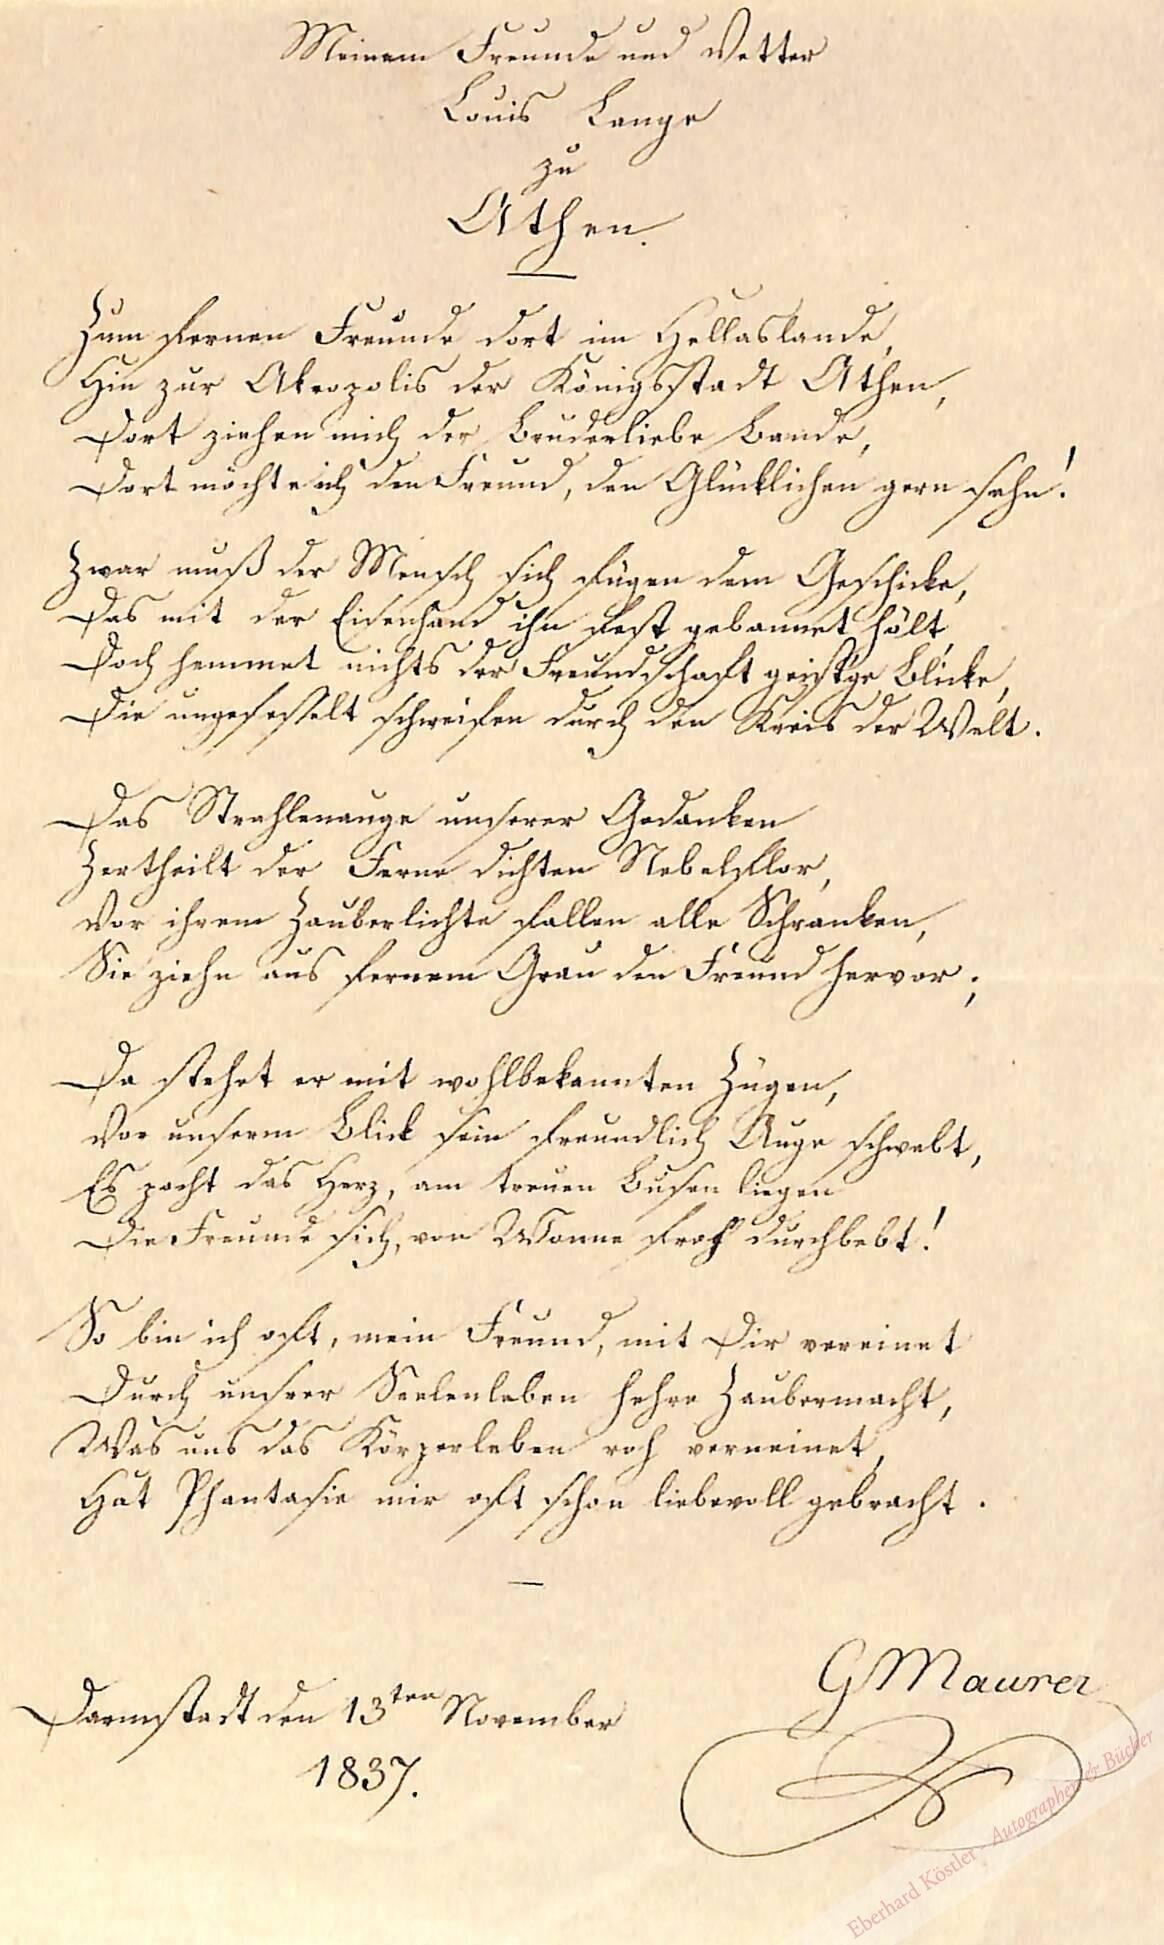 Meinem Freunde und Vetter
Louis Lange
zu
Athen.
Zum fernen Freunde dort im Hellaslande,
Hin zur Akropolis der Königsstadt Athen,
Dort ziehen mich der Bruderliebe Bande,
Dort möchte ich den Freund, den Glücklichen gern sehn!
Zwar muß der Mensch sich fügen dem Geschicke,
Das mit der Eisenhand ihn fest gebannet hält,
Doch hemmet nichts der Freundschaft geist'ge Blicke,
Die ungefesselt schweifen durch den Kreis der Welt.
Das Strahlenauge unserer Gedanken
Zertheilt der Ferne dichten Nebelflor,
Vor ihrem Zauberlichte fallen alle Schranken,
Sie ziehn aus fernem Grau den Freund hervor;
Da stehet er mit wohlbekannten Zügen,
Vor unserm Blick sein freundlich Auge schwebt,
Es pocht das Herz, am treuen Busen liegen
Die Freunde sich, von Wonne froh durchbebt!
So bin ich oft, mein Freund, mit Dir vereinet
Durch unsrer Seelenleben hehre Zaubermacht,
Was uns das Körperleben roh verneinet,
Hat Phantasie mir oft schon liebevoll gebracht.
GMaurer
Darmstadt den 13ten November
1837.
Eberhard Köstler - Autographen & Bücher